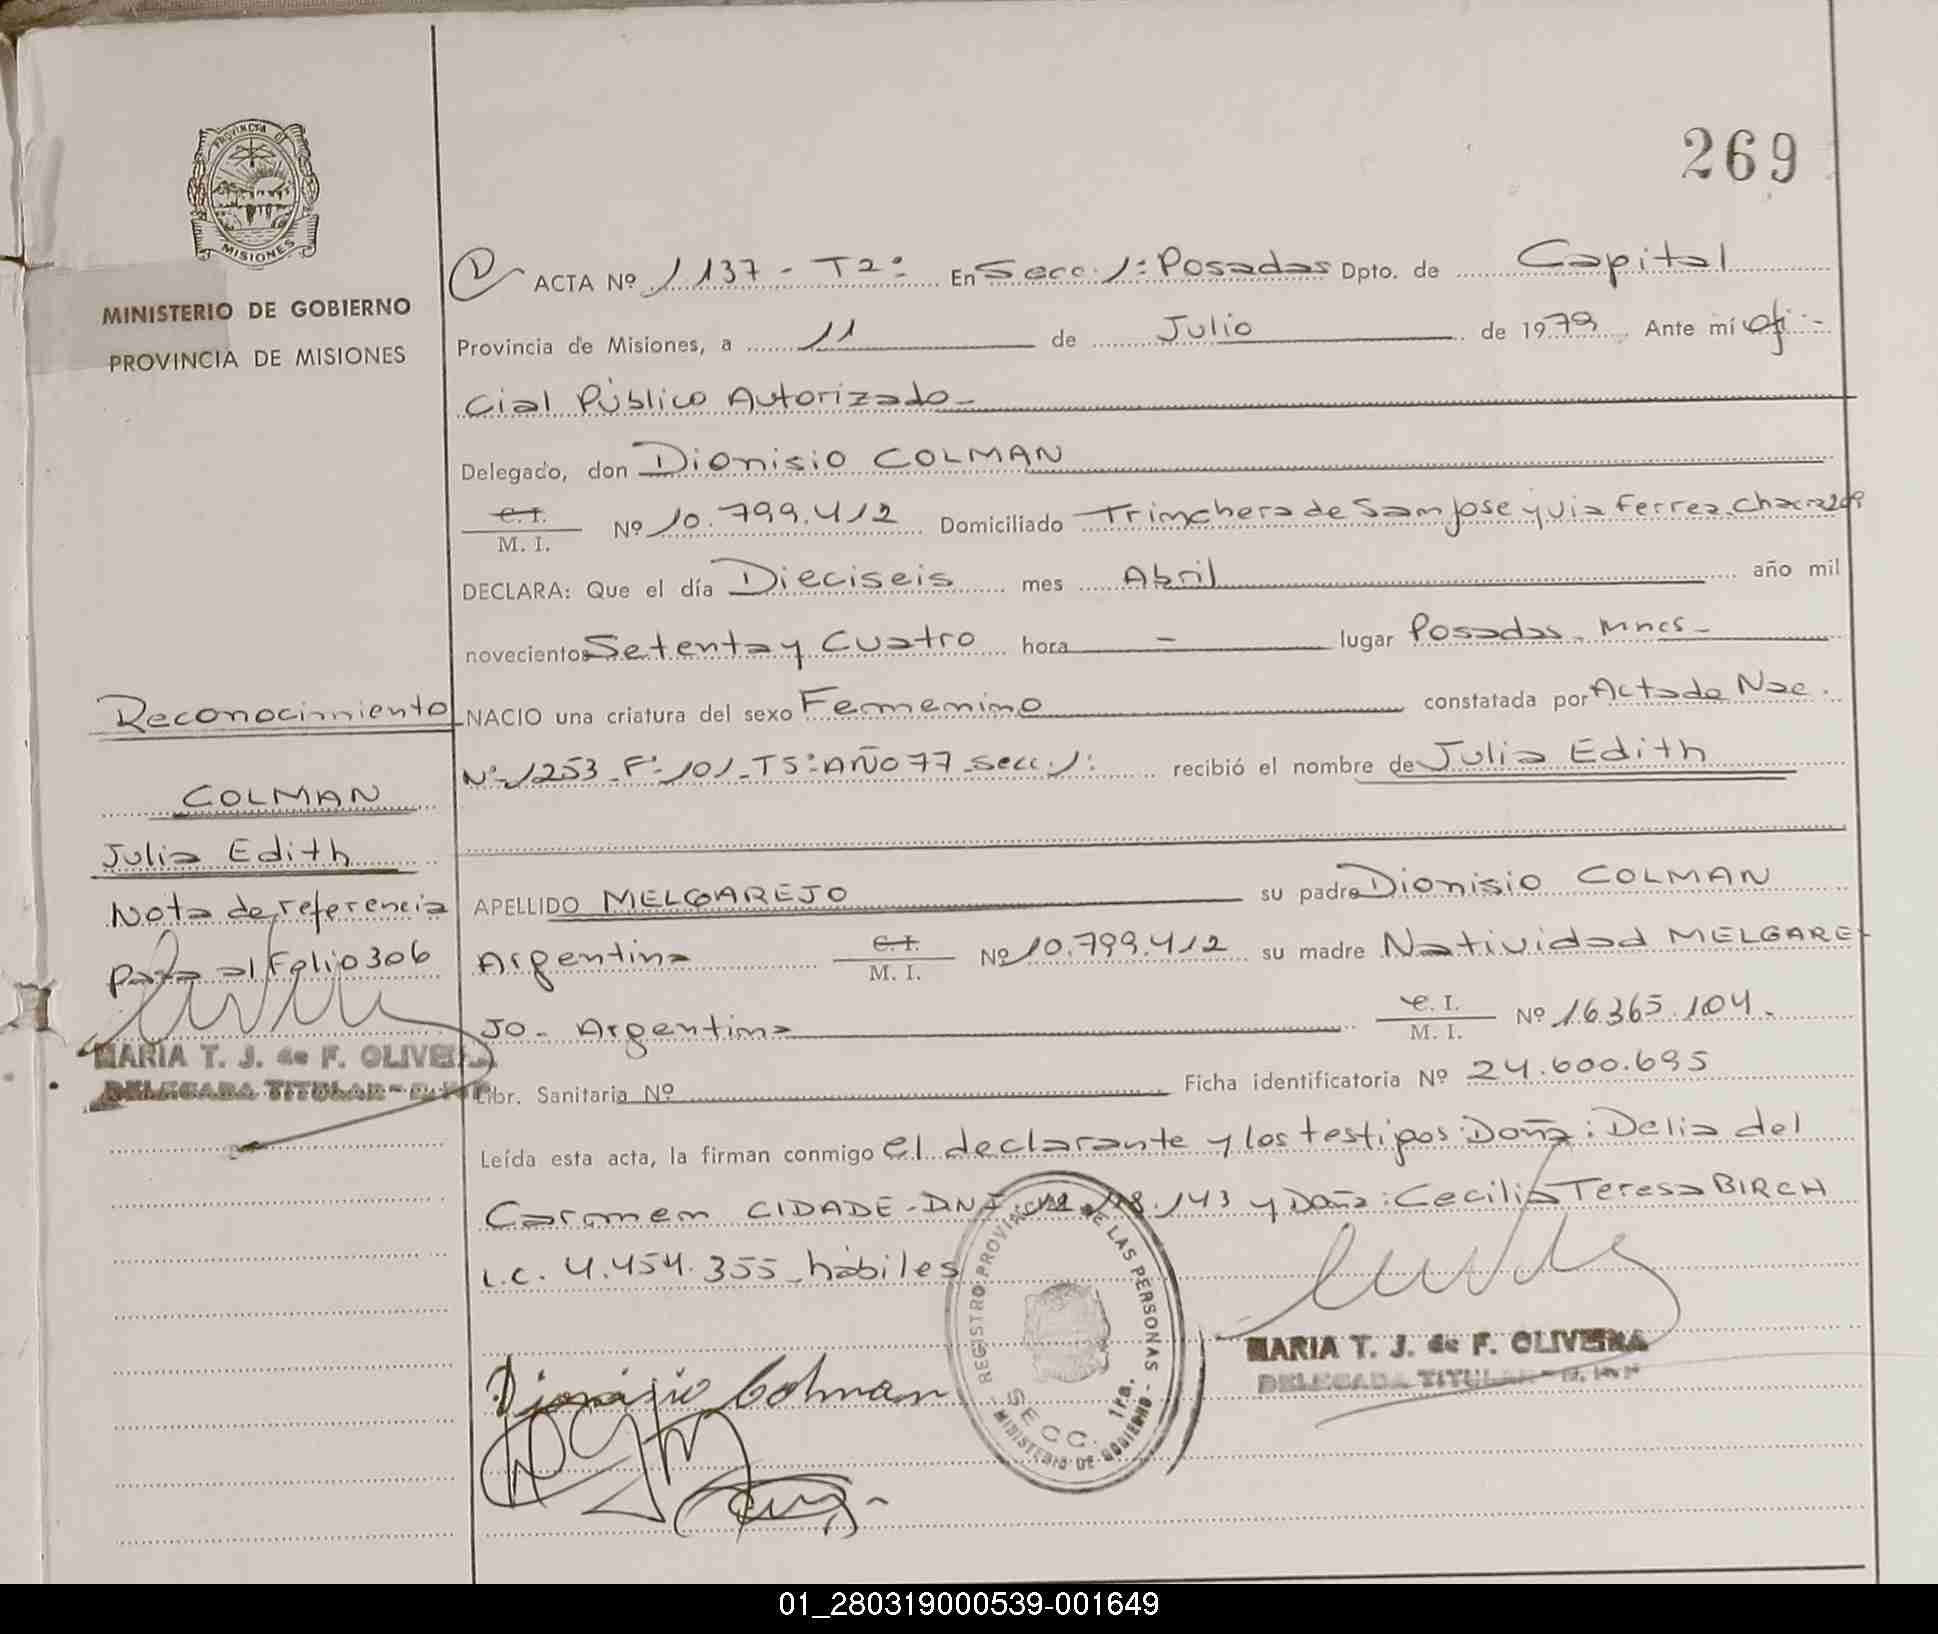 PROVINCIA DE
MISIONES
MINISTERIO DE GOBIERNO
PROVINCIA DE MISIONES
269
ACTA Nº 1137 - T2º En Secc. 1ª Posadas Dpto. de Capital
Provincia de Misiones, a 11 de Julio de 1979 Ante mí Ofi-
cial Público Autorizado-
Delegado, don Dionisio COLMAN
C.I.
M. I. Nº 10.799.412 Domiciliado Trinchera de San Jose y via Ferrea. Chacra 209
DECLARA: Que el día Dieciseis mes Abril año mil
novecientos Setenta y Cuatro hora - lugar Posadas - Mnes-
NACIO una criatura del sexo Femenino constatada por Acta de Nac.
Nº 1253 - Fº 101 - T5º AÑO 77 - Secc. 1ª recibió el nombre de Julia Edith
APELLIDO MELGAREJO su padre Dionisio COLMAN
Argentina C.I.
M. I. Nº 10.799.412 su madre Natividad MELGARE-
JO - Argentina C. I.
M. I. Nº 16.365.104.
Libr. Sanitaria Nº Ficha identificatoria Nº 24.600.695
Leída esta acta, la firman conmigo el declarante y los testigos: Doña: Delia del
Carmen CIDADE - DNI 143 y Doña: Cecilia Teresa BIRCH
L.C. 4.454.355 hábiles
Reconocimiento
COLMAN
Julia Edith
Nota de referencia
pasa al Folio 306
MARIA T. J. de F. OLIVEIRA
DELEGADA TITULAR
Dionisio Colman
REGISTRO PROVINCIAL DE LAS PERSONAS
SECC. 1ra.
MINISTERIO DE GOBIERNO
MARIA T. J. de F. OLIVEIRA
DELEGADA TITULAR
01_280319000539-001649